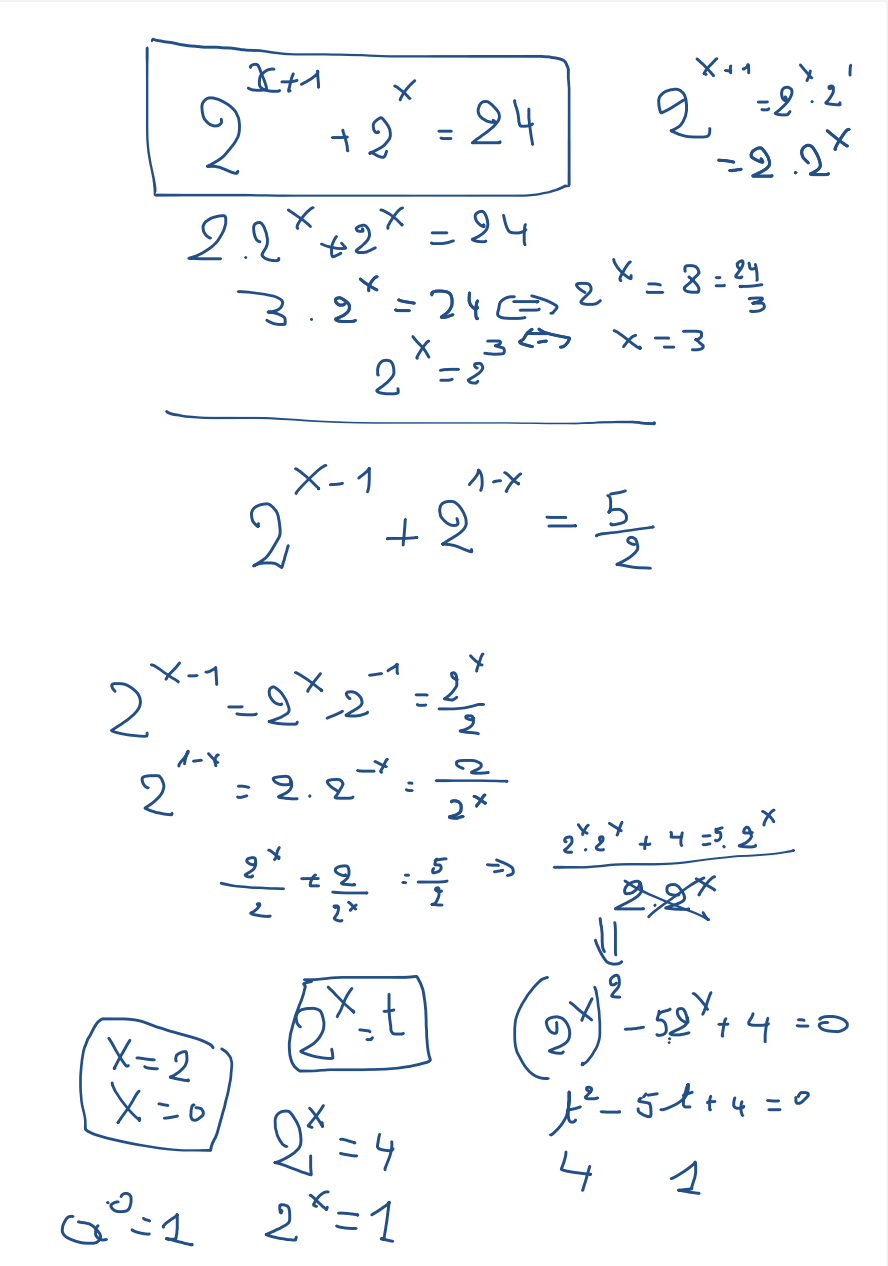 2^(x+1) + 2^x = 24
2^(x+1) = 2^x · 2^1
= 2 · 2^x
2 · 2^x + 2^x = 24
3 · 2^x = 24 ⇔ 2^x = 8 = 24/3
2^x = 2^3 ⇔ x = 3
2^(x-1) + 2^(1-x) = 5/2
2^(x-1) = 2^x · 2^(-1) = 2^x/2
2^(1-x) = 2 · 2^(-x) = 2/2^x
2^x/2 + 2/2^x = 5/2 ⇒ (2^x · 2^x + 4 = 5 · 2^x)/(2 · 2^x)
⇓
(2^x)^2 - 5 · 2^x + 4 = 0
2^x = t
t^2 - 5t + 4 = 0
4 1
2^x = 4
2^x = 1
x = 2
x = 0
a^0 = 1